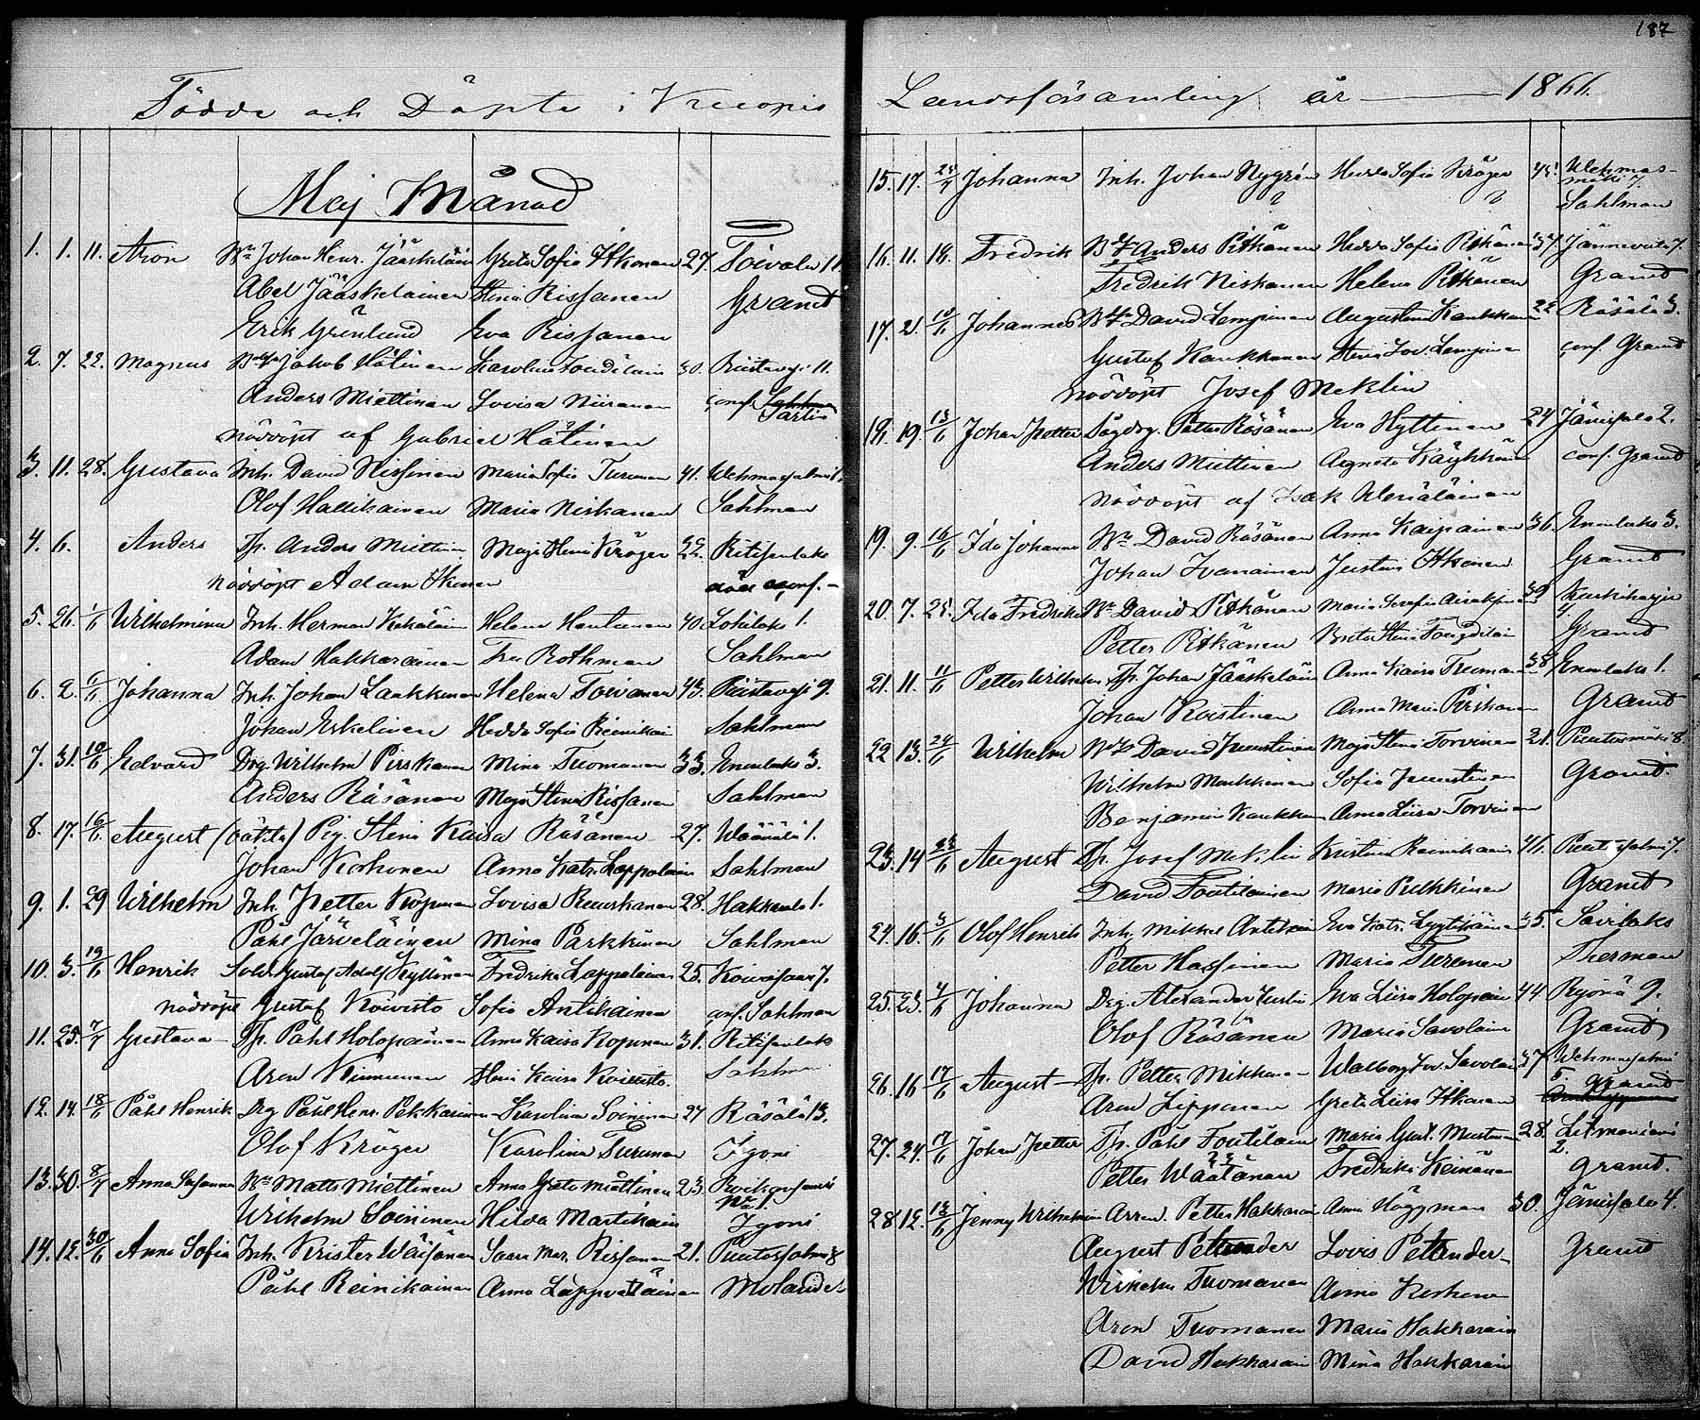 187
Födde och Döpte i Kuopio Landsförsamling år 1866.
Maj Månad
1. 1. 11. Aron Johan Henr. Jääskeläin Greta Sofia Itkonen 27. Toivala 11
Abel Jääskelainen Stina Rissanen Grand
Erik Grönlund Eva Rissanen
2. 7. 22. Magnus Jakob Hätinen Karolina 30. Riistavesi 11.
Anders Miettinen Lovisa Niiranen conf. Sartin
nöddöpt af Gabriel Hätinen
3. 11. 28. Gustava Inh. David Nissinen Maria Sofia Turunen 41. Wehmasalmi
Olof Hallikainen Maria Niskanen Sahlman
4. 6. Anders Tp. Anders Miettin Maja Stina Kröger 22. Ritisenlaks
nöddöpt Adam Ikonen död conf.
5. 26. 1/6 Wilhelmina Inh. Herman Kekäläin Helena Hentunen 40. Lohilaks 1.
Adam Hakkarainen Fru Rothman Sahlman
6. 2. Johanna Inh. Johan Laakkonen Helena Toivanen 43. Riistavesi 9.
Johan Eskelinen Hedda Sofia Reinikai Sahlman
7. 31. 10/6 Edvard Drg. Wilhelm Pirskanen Mina Tuomanen 33. Enonlaks 3.
Anders Räsänen Maja Stina Rissanen Sahlman
8. 17. 16/6 August (oäkta) Pig. Stina Kaisa Räsänen 27. Wäänälä 1.
Johan Korhonen Anna Katr. Lappalain Sahlman
9. 1. 29 Wilhelm Inh. Petter Koponen Lovisa Ruuskanen 28. Hakkarala 1.
Påhl Järveläinen Mina Parkkinen Sahlman
10. 3. 19/6 Henrik Sold. Gustaf Adolf Kyllönen Fredrika Lappalainen 25. Koivusaari 7.
nöddöpt Gustaf Koivisto Sofia Antikainen conf. Sahlman
11. 25. 7/7 Gustava Tp. Påhl Holopainen Anna Kaisa Koponen 31. Ritisenlaks
Aron Kinnunen Stina Kaisa Koivisto Sahlman
12. 14. 18/6 Påhl Henrik Drg Påhl Henr. Pekkarinen Karolina Soininen 27 Räsälä 13.
Olof Kröger Karolina Turunen Igoni
13. 30. 8/7 Anna Susanna Matts Miettinen Anna Greta Miettinen 23.
Wilhelm Soininen Hilda Martikain Igoni
14. 12. 30/6 Anna Sofia Inh. Krister Wäisänen Saara Mar. Rissanen 21. Puutosalmi 8
Påhl Reinikainen Anna Lappvetläinen Molander
15. 17. Johanna Inh. Johan Nygrén Hedda Sofia Kröger 45. Wehmas-
mäki 7.
Sahlman
16. 11. 18. Fredrik Anders Pitkänen Hedda Sofia Pitkänen 37. Jännevirta 7.
Fredrik Niskanen Helena Pitkänen Grand
17. 2. 10/6 Johannes David Lempinen Augustina Kaukkanen 22 Räsälä 3.
Gustaf Kaukkanen Stina Lov. Lempinen conf. Grand
nöddöpt Josef Meklin
18. 19. 13/6 Johan Petter Petter Räsänen Eva Hyttinen 24 Jänisalo 2.
Anders Miettinen Agneta Käyhkönen conf. Grand
nöddöpt af Isak Wenäläinen
19. 9. 16/6 Ida Johanna David Räsänen Anna Kaipainen 36. Enonlaks 3.
Johan Ivanainen Justina Itkonen Grand
20. 7. 25. Ida Fredrika David Pitkänen Maria Serafia 39 Kurkiharju
Petter Pitkänen Stina Grand
21. 11. 11/6 Petter Wilhelm Tp. Johan Jääskeläin Anna Kaisa Tuomanen 38. Enonlaks 1.
Johan Korstinen Anna Maria Pirskanen Grand
22 13. 24/6 Wilhelm David Juustinen Maja Stina Torvinen 21. Puutosmäki 8.
Wilhelm Markkanen Sofia Juustinen Grand.
Benjamin Kaukkanen Anna Liisa Torvinen
23. 14 August Tp. Josef Meklin Kristina Reinikain 41. Puutosalmi 7.
David Toutilainen Maria Pulkkinen Grand
24. 16. 3/6 Olof Henrik Inh. Mikkel Antikain Eva Katr. Lyytikäinen 35. Savilaks
Petter Hassinen Maria Turunen Therman
25. 23. 4/6 Johanna Drg. Alexander Eva Liisa Holopain 44. Ryönä 9.
Olof Räsänen Maria Savolain Grand
26. 16 17/6 August Tp. Petter Mikkonen Walborg Lov. Savolain 37. Wehmasalmi
Aron Lipponen Greta Liisa Itkonen 5. Grand
27. 24. 17/6 Johan Petter Tp. Påhl Toutilain Maria Gust. Mustonen 28. Litmaniemi
2.
Petter Wäätänen Fredrika Keinänen Grand.
28 12. 13/6 Jenny Wilhelmin Arren. Petter Hakkarain Anna Höggman 30. Jänisalo 4.
August Pettender Lovis Pettender Grand
Wilhelm Tuomanen Anna Korhonen
Aron Tuomanen Maria Hakkarain
David Hakkarain Mina Hakkarain